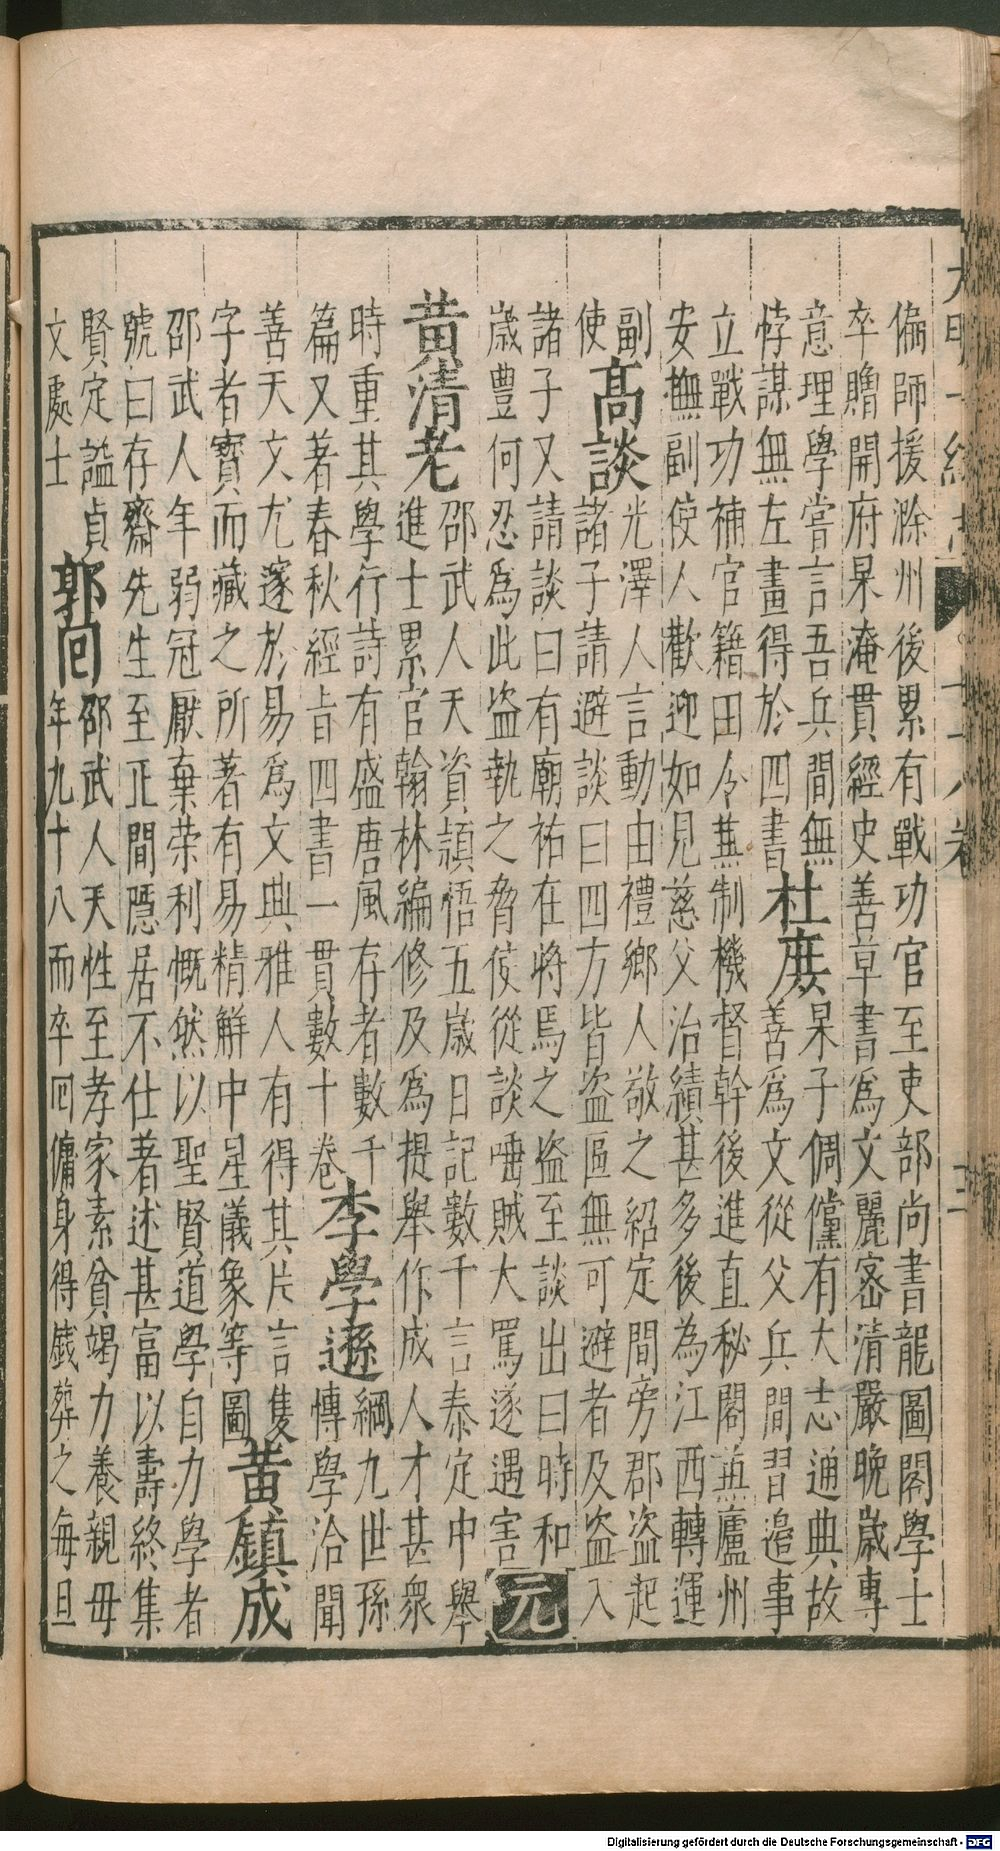 偏師援滁州後累有戰功官至吏部尚書龍圖閣學士
卒贈開府杲淹貫經史善草書爲文麗宻清嚴晚歲專
意理學嘗言吾兵間無
悖謀無左畫得於四書
杜庶
杲子倜儻有大志通典故
善爲文從父兵間習邉事
立戰功補官籍田令兼制機督幹後進直秘閣兼廬州
安撫副使人歡迎如見慈父治績甚多後為江西轉運
副
使
高談
光澤人言動由禮鄉人敬之紹定間旁郡盜起
諸子請避談曰四方皆盜區無可避者及盜入
諸子又請談曰有廟祐在將焉之盜至談出曰時和
歲豊何忍爲此盜執之脅使從談唾賊大罵遂遇害
元
黄清老
邵武人天資頴悟五歲日記數千言泰定中舉
進士累官翰林編修及爲提舉作成人才甚衆
時重其學行詩有盛唐風存者數千
篇又著春秋經旨四書一貫數十卷
李學遜
綱九世孫
慱學洽聞
善天文尤邃於易爲文典雅人有得其片言隻
字者寳而藏之所著有易精解中星儀象等圖
黄鎮成
邵武人年弱冠厭棄荣利慨然以聖賢道學自力學者
號曰存齋先生至正間隱居不仕著述甚富以壽終集
賢定謚貞
文處士
郭回
邵武人天性至孝家素貧竭力養親母
年九十八而卒回傭身得錢葬之每旦
Digitalisierung gefördert durch die Deutsche Forschungsgemeinschaft - DFG